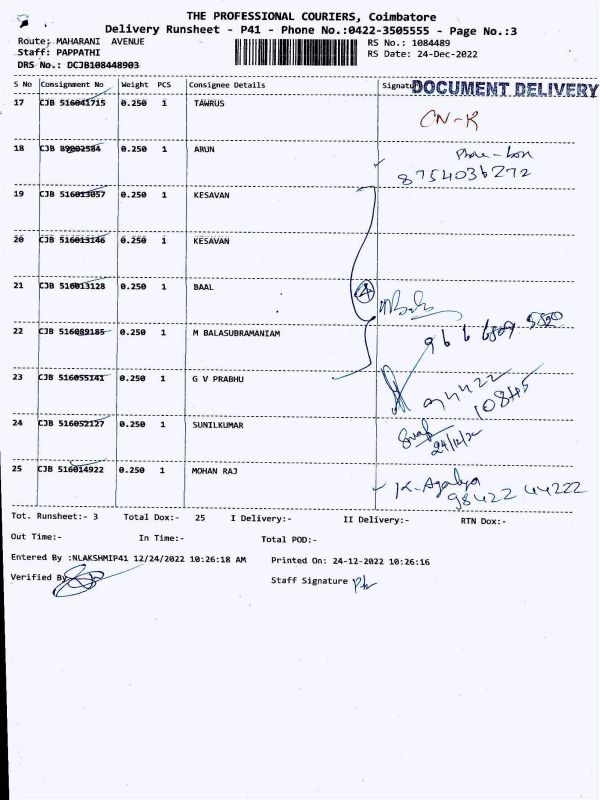 THE PROFESSIONAL COURIERS, Coimbatore
Delivery Runsheet - P41 - Phone No.:0422-3505555 - Page No.:3
Route: MAHARANI AVENUE RS No.: 1084489
Staff: PAPPATHI RS Date: 24-Dec-2022
DRS No.: DCJB108448903
S No Consignment No Weight PCS Consignee Details Signature DOCUMENT DELIVERY
17 CJB 516041715 0.250 1 TAWRUS
CN-R
18 CJB 89002584 0.250 1 ARUN
8754036272
19 CJB 516013057 0.250 1 KESAVAN
20 CJB 516013146 0.250 1 KESAVAN
21 CJB 516013128 0.250 1 BAAL
4
22 CJB 516089185 0.250 1 M BALASUBRAMANIAM
23 CJB 516055141 0.250 1 G V PRABHU
94422
10845
24 CJB 516052127 0.250 1 SUNILKUMAR
25 CJB 516014922 0.250 1 MOHAN RAJ
K. Agalya
98422 44222
Tot. Runsheet:- 3 Total Dox:- 25 I Delivery:- II Delivery:- RTN Dox:-
Out Time:- In Time:- Total POD:-
Entered By :NLAKSHMIP41 12/24/2022 10:26:18 AM Printed On: 24-12-2022 10:26:16
Verified By Staff Signature